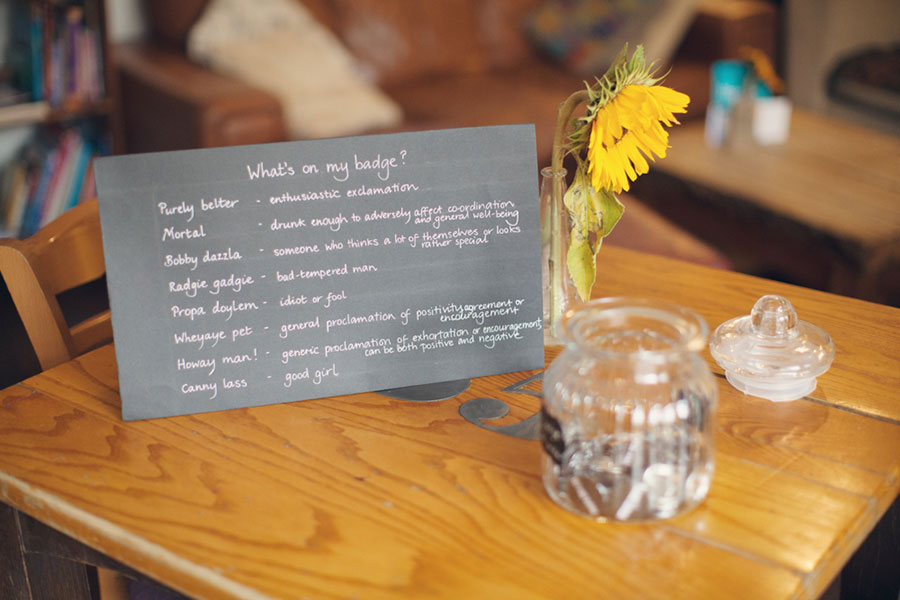 What's on my badge?
Purely belter - enthusiastic exclamation
Mortal - drunk enough to adversely affect co-ordination
and general well-being
Bobby dazzla - someone who thinks a lot of themselves or looks
rather special
Radgie gadgie - bad-tempered man
Propa doylem - idiot or fool
Wheyaye pet - general proclamation of positivity, agreement or
encouragement
Howay man! - generic proclamation of exhortation or encouragement,
can be both positive and negative
Canny lass - good girl